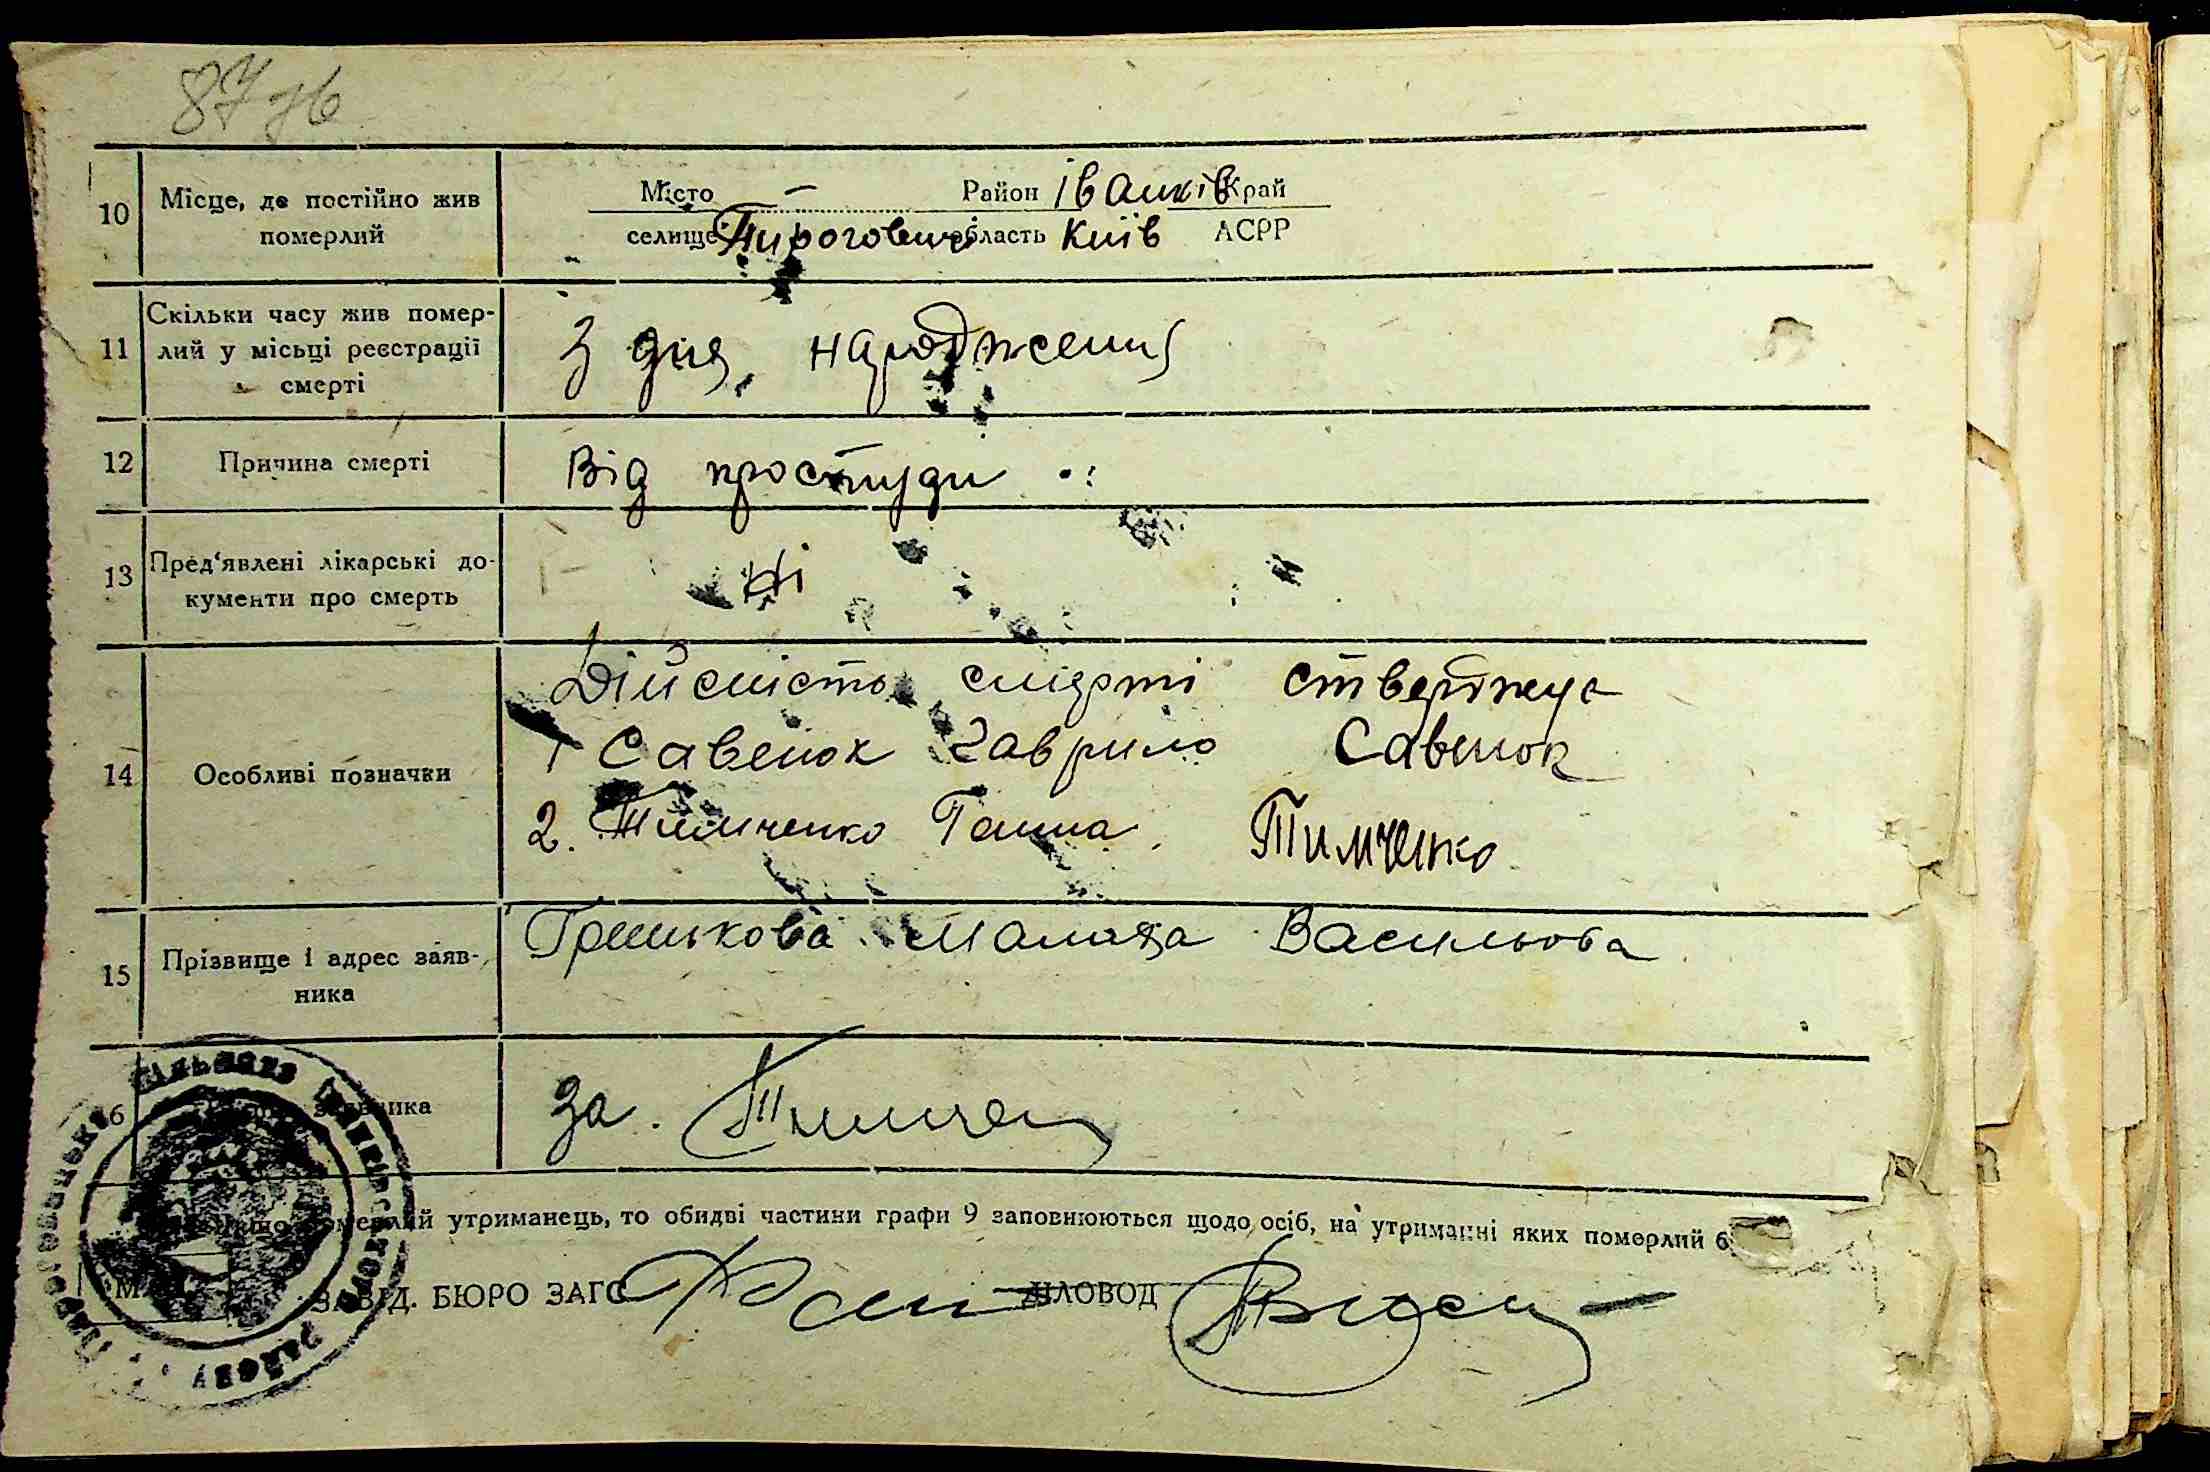 87 зв
10 Місце, де постійно жив померлий
Місто — Район Іванків Край
селище Пироговичі область Київ АСРР
11 Скільки часу жив померлий у місьці реєстрації смерті
З дня народження
12 Причина смерті
Від простуди
13 Пред'явлені лікарські документи про смерть
Ні
14 Особливі позначки
Дійсність смерти стверджує
1 Савенок Гаврило Савенок
2. Тимченко Ганна. Тимченко
15 Прізвище і адрес заявника
Грицькова Васильова
За.
померлий утриманець, то обидві частини графи 9 заповнюються щодо осіб, на утриманні яких померлий
ЗАВІД. БЮРО ЗАГС ДІЛОВОД